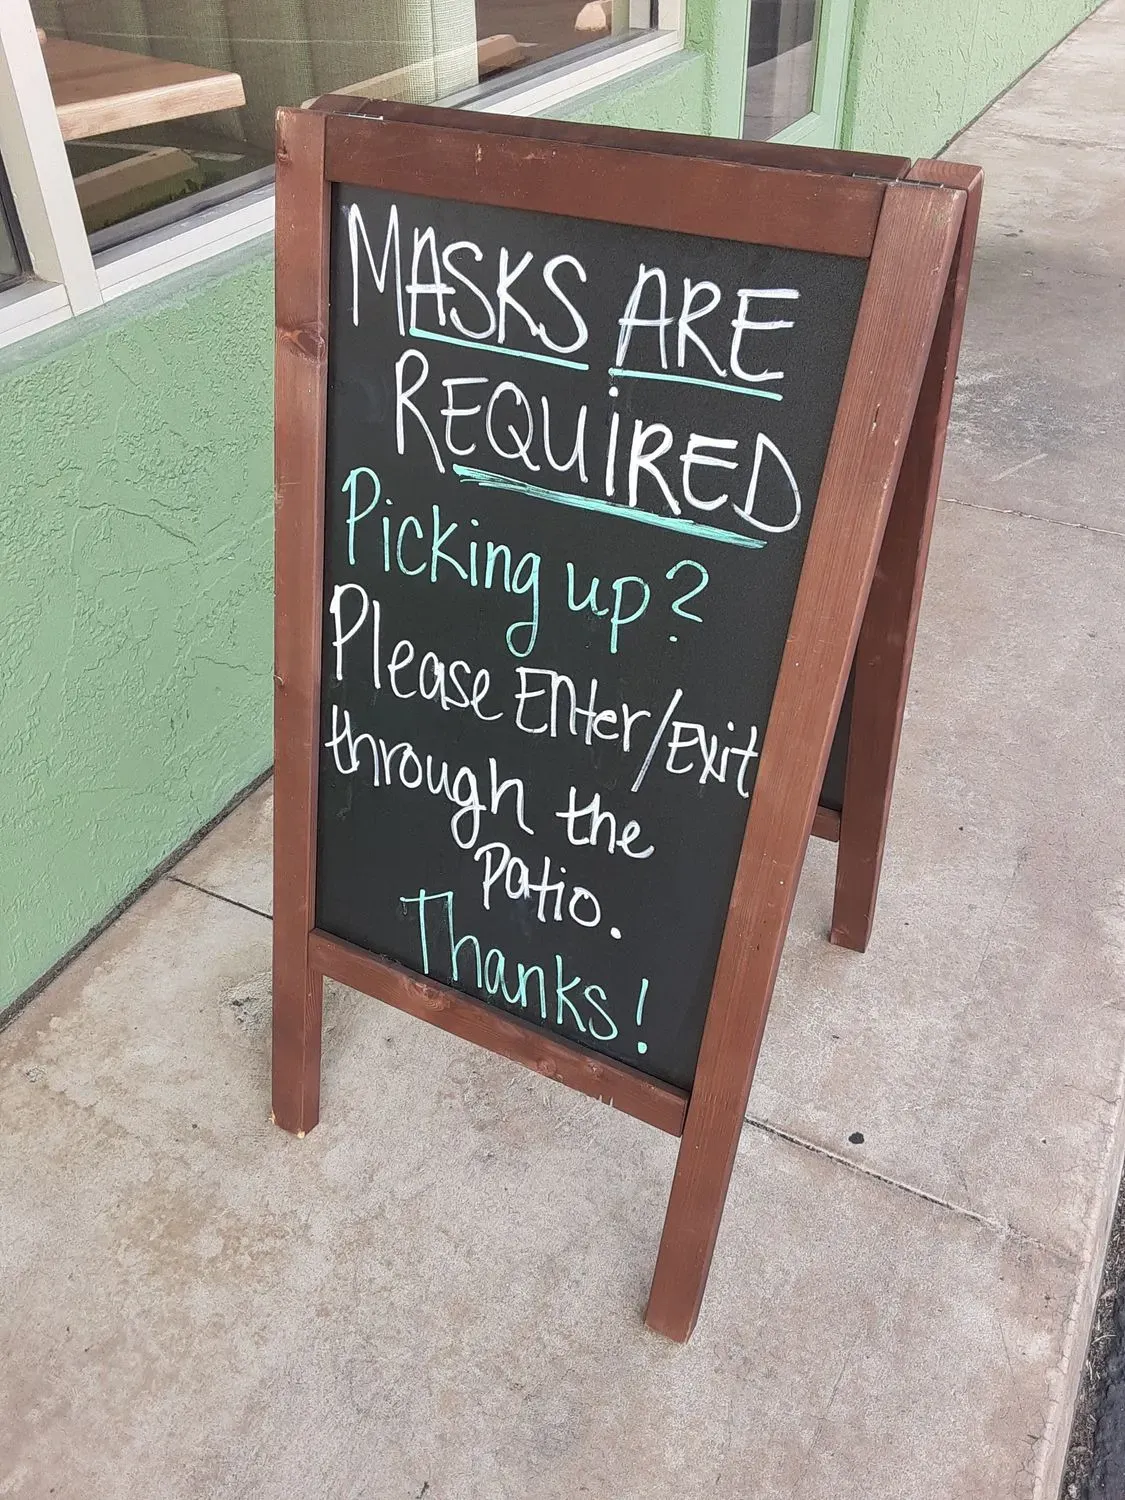 MASKS ARE
REQUiRED
Picking up?
Please Enter/Exit
through the
patio.
Thanks!